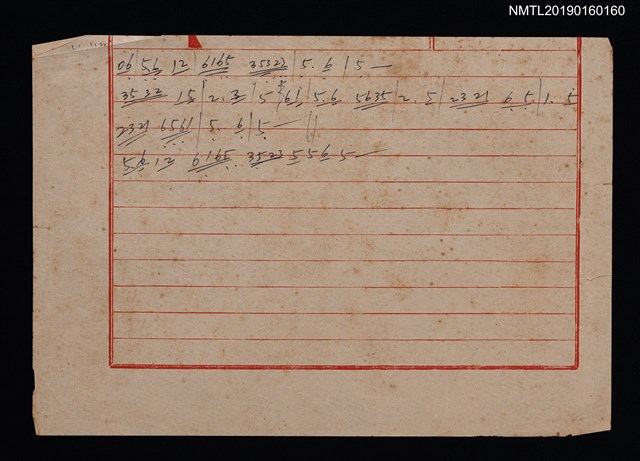 NMTL20190160160
06 | 56 12 6165 35323 | 5. 6 | 5 —
3532 15 | 2. 3 | 5 61 | 5.6 5635 | 2. 5 | 2321 65 | 1. 5
2321 6561 | 5. 6 | 5 — ||
56 12 6165 3523 5 5 6 5 —